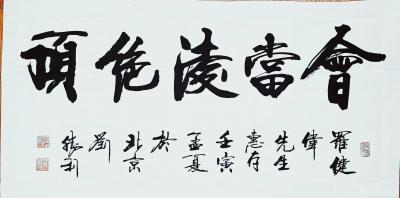 會當淩絶頂
羅健
偉
先生
惠存
壬寅
孟夏
於
北京
劉
勝利